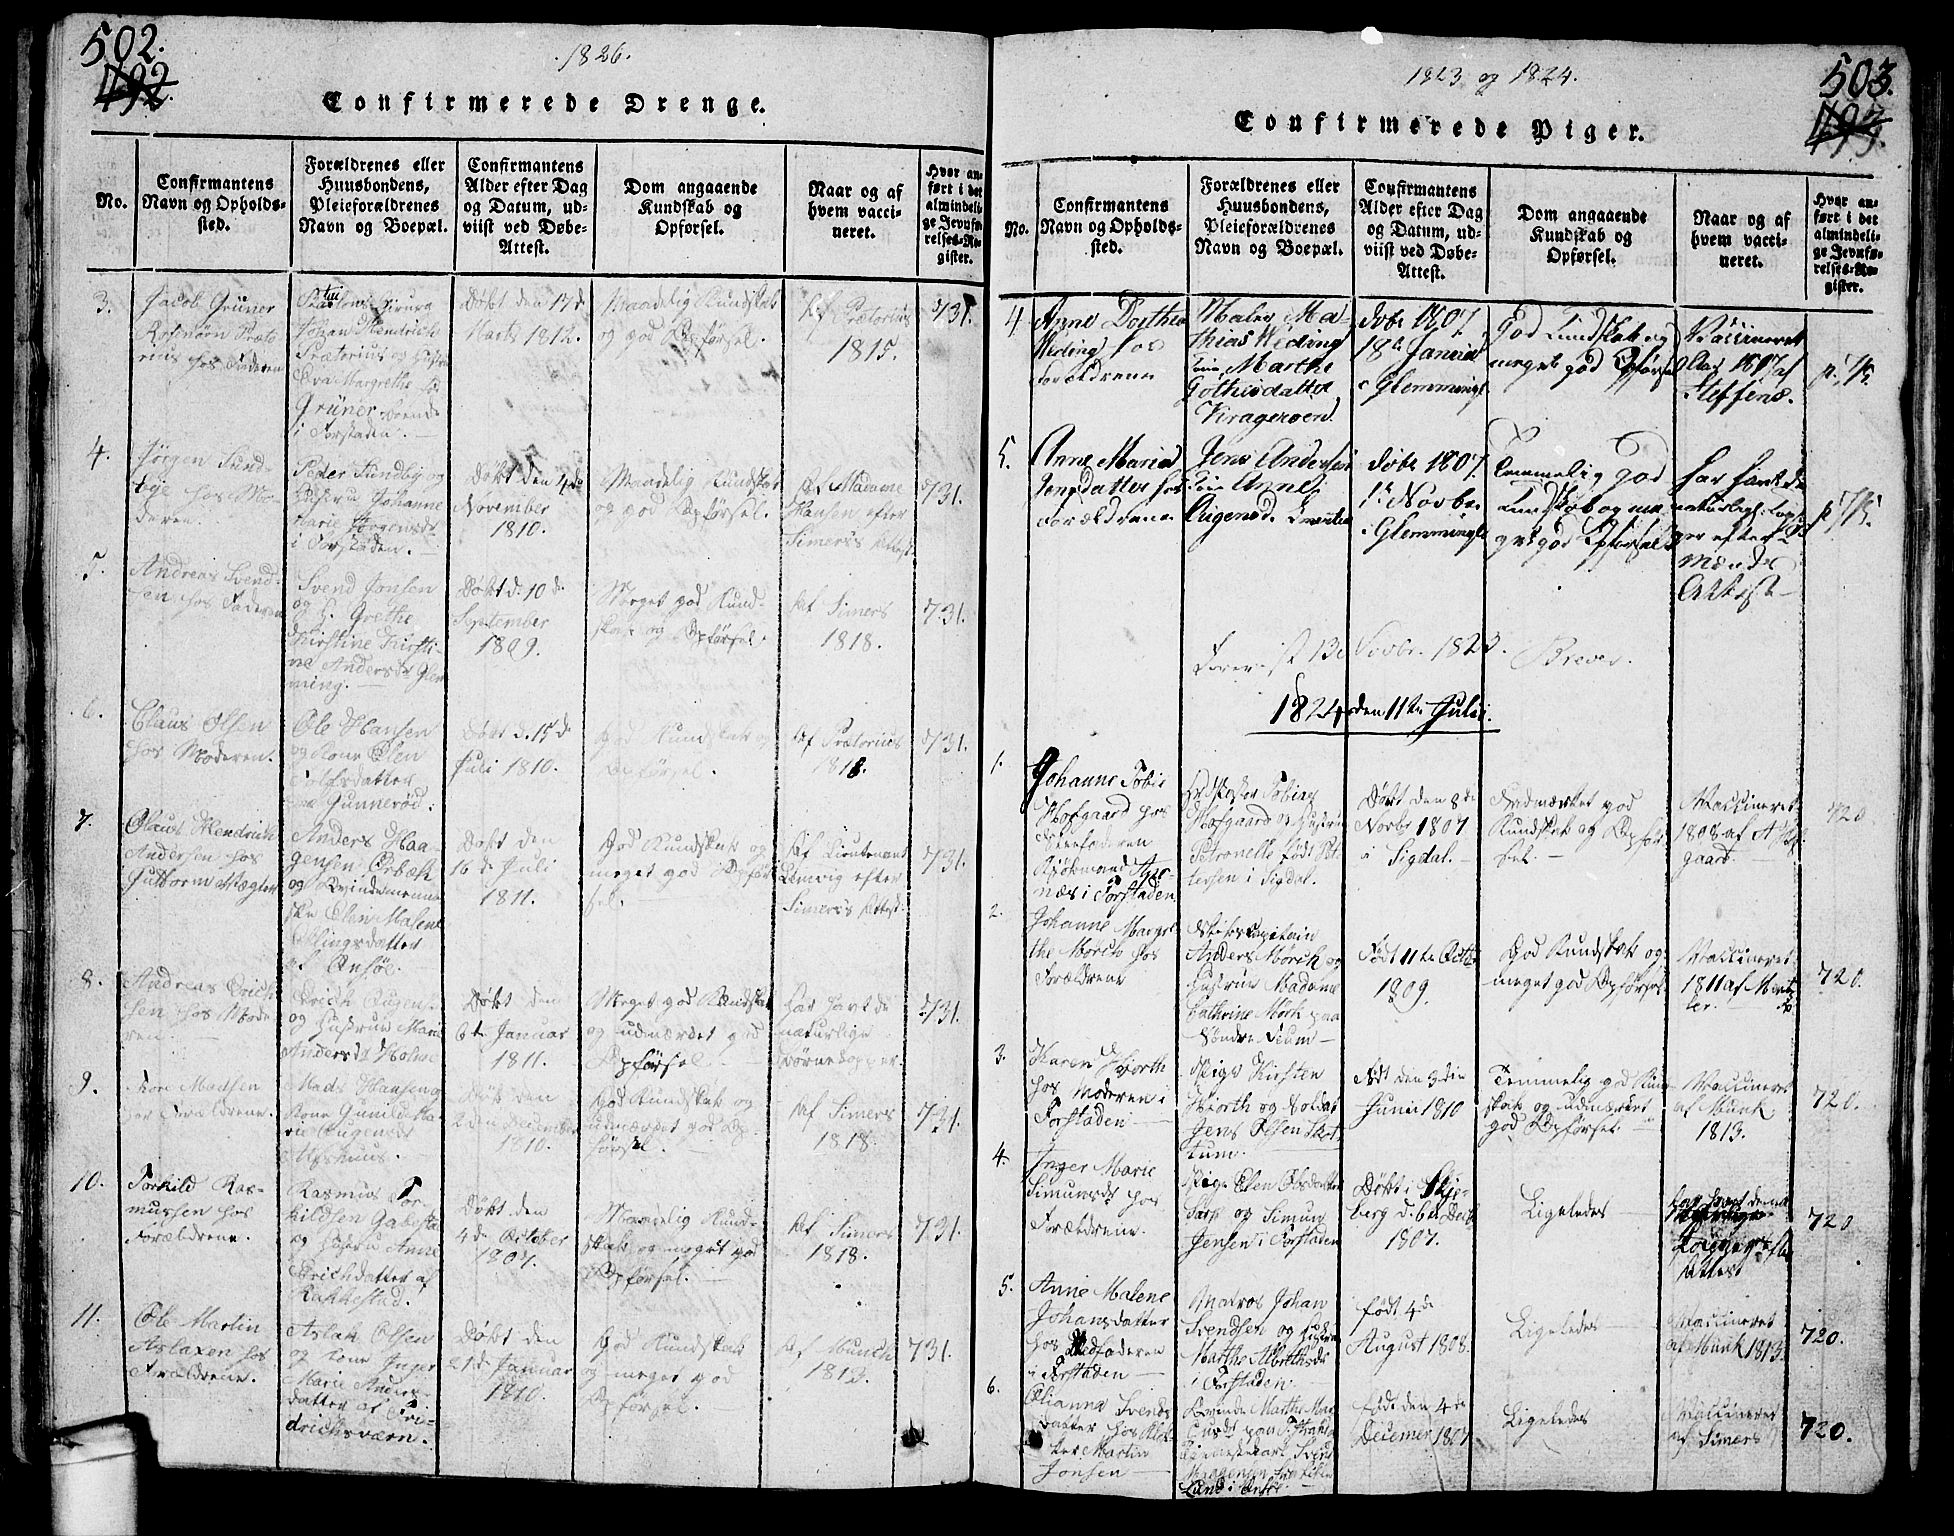 502.
492.
1826.
Confirmerede Drenge.
No.
Confirmantens
Navn og Opholds-
sted.
Forældrenes eller
Huusbondens,
Pleieforældrenes
Navn og Boepæl.
Confirmantens
Alder efter Dag
og Datum, ud-
viist ved Døbe-
Attest.
Dom angaaende
Kundskab og
Opførsel.
Naar og af
hvem vacci-
neret.
Hvor an-
ført i det
almindeli-
ge Jevnfø-
relses-Re-
gister.
3.
Jacob Grüner
Præto
rius hos Faderen
Chirurg
Johan Hendrich
Prætorius og Hustru
Eva Margrethe
Grüner
i Forstaden.
Døbt den 17 d
Marts 1812.
Maadelig Kundskab
og god Opførsel.
Af Prætorius
1815.
731.
4.
Jørgen Sund-
bye hos Mo-
deren.
Peder Sundby og
Hustru Johanne
Marie Jørgensd
i Forstaden.
Døbt den 4de
November
1810.
Maadelig Kundskab
og god Opførsel.
Af Madame
Hansen efter
Simers's Attest
731.
5.
Andreas Svend-
sen hos Faderen
Svend Jonsen
og H. Grethe
Kirstine Kirsti-
ne Andersdr Glem
ming.
Døbt d. 10 de
September
1809.
Meget god Kund-
skab og Opførsel.
Af Simers
1818.
731.
6.
Claus Olsen
hos Moderen.
Ole Hansen
og Kone Elen
Olesdatter
Gunnerød.
Døbt d. 15 de
Juli 1810.
God Kundskab og
Opførsel.
Af Prætorius
1818.
731.
7.
Claus Hendrich
Andersen hos
Gutorm Vægter
Anders Haa-
gensen Ørbæk
og Qvindemenne-
ske Elen Malene
Ellingsdatter
af Onsøe.
Døbt den
16 de Juli
1811.
God Kundskab og
meget god Opfør-
sel.
Af Lieutenant
Lemvig efter
Simers's Attest.
731.
8.
Andreas Erich
sen hos Mode
ren.
Erich Eugens.
og Hustru Marie
Andersdr Holme
Døbt den
6te Januar
1811.
Meget god Kundskab
og udmærket god
Opførsel.
Har havt de
naturlige
Børnekopper.
731.
9.
Tore Madsen
hos Forældrene.
Mads Hansen og
Kone Gunild Ma-
rie Eugensdr
Døbt den
2 den December
1810.
God Kundskab og
udmærket god Op-
førsel.
Af Simers
1818.
731.
10.
Torkild Ras-
mussen hos
Forældrene.
Rasmus Tor-
kildsen
og Hustru Anne
Erichdatter af
Rakkestad.
Døbt den
4de October
1807.
Maadelig Kund-
skab og meget god
Opførsel.
Af Simers
1818.
731.
11.
Ole Martin
Aslaxen hos
Forældrene.
Aslak Olsen
og Kone Inger
Marie Anders-
datter af Fri-
drichsværn.
Døbt den
21de Januar
1810.
God Kundskab
og meget god
Opførsel.
Af Munch
1813.
731.
503.
493.
1823 og 1824.
Confirmerede Piger.
No.
Confirmantens
Navn og Opholds-
sted.
Forældrenes eller
Huusbondens,
Pleieforældrenes
Navn og Boepæl.
Confirmantens
Alder efter Dag
og Datum, ud-
viist ved Døbe-
Attest.
Dom angaaende
Kundskab og
Opførsel.
Naar og af
hvem vacci-
neret.
Hvor an-
ført i det
almindeli-
ge Jevnfø-
relses-Re-
gister.
4
Anne Dorthea
Weding hos
Forældrene
Maler Ma-
thias Weding
Marthe
Gothesdatter
Kragerøen.
døbt 1807.
18de Januar
i Glemminge
God Kundskab og
meget god Opførsel
Vaccineret
Aar 1807 af
Steffens.
5.
Anne Maria
Jensdatter hos
Forældrene
Jens Andersen
Anne
døbt 1807.
1te Novbr.
i Glemminge
Temmelig god
Kundskab og me-
get god Opførsel
har havt de
naturlige kop-
per efter
mænds
Attest
13 Novbr. 1823.
Brever.
1824 den 11te Julii.
1.
Johanne Tobie
Hofgaard hos
Steefaderen
i Forstaden
Tobias
Hofgaard og Hustrue
Petronelle født Pet-
tersen i Sigdal.
Døbt den 8de
Novbr 1807
i Sigdal.
Udmærket god
Kundskab og Opfør-
sel.
Vaccineret
1808 af A Hof-
gaard.
720
2.
Johanne Margre
the Mørch hos
Forældrene
Skibscapitain
Anders Mørch og
Hustrue Madame
Cathrine Mørk paa
Søndre Feum
Født 11te Octbr
1809.
God Kundskab og
meget god Opførsel
Vaccineret
1811 af
720.
3.
Karen Hiorth
hos Moderen i
Forstaden
Pige Kirsten
Hiorth og Soldat
Jens Olsen Skot-
tum.
født den 3die
Junii 1810
Temmelig god Kund-
skab og udmærket
god Opførsel.
Vaccineret
af Munk
1813.
720.
4.
Inger Marie
Simunsdr hos
Forældrene.
Pige Elen Olesdatter
Sarp og Simun
Jensen i Forstaden
Døbt i Skje-
berg d. 6te Decbr
1807.
Ligeledes
Attest
720
5.
Anne Malene
Johansdatter
hos Stedfaderen
i Forstaden
Matros Johan
Svendsen og Hustrue
Marthe Albrethsdr
i Forstaden.
født 4de
August 1808.
Ligeledes
Vaccineret
af Munk 1813.
720.
6.
Elianna Svends
datter hos
Martin
Jonsen
Qvinde Marthe
Lund i Onsøe
født den 4de
Decemer 1807
Ligeledes
Vaccineret
af Simers
720.